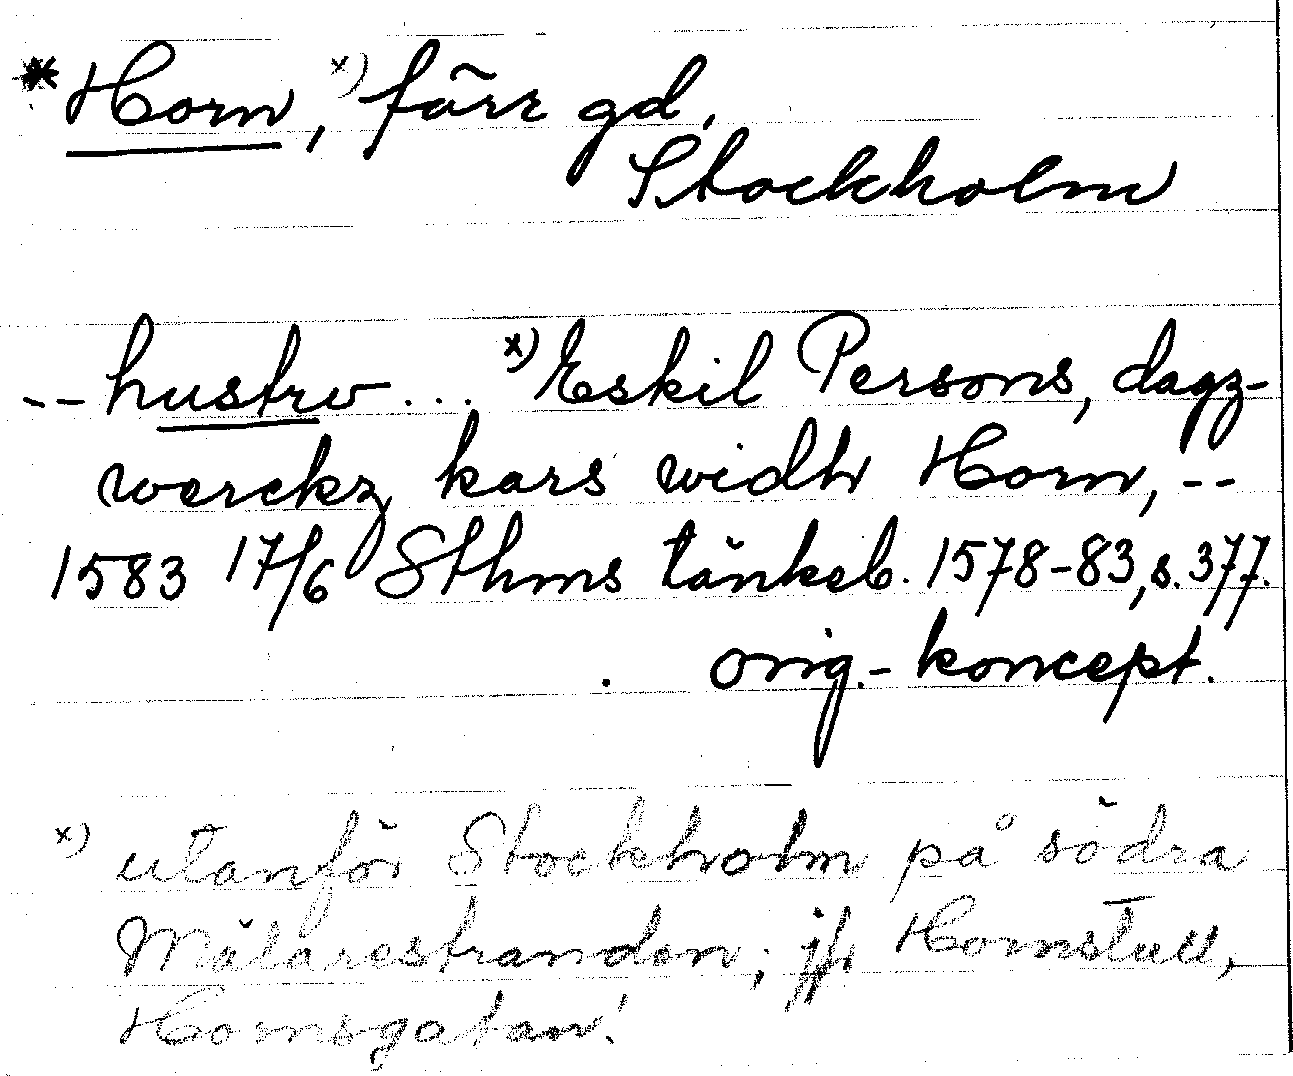 *Horn, x) förr gd,
Stockholm
-- hustrv ... x) Eskil Persons, dagz-
werckz kars widh Horn, --
1583 17/6 Sthms tänkeb. 1578-83, s. 377.
orig.-koncept.
x) utanför Stockholm på södra
Mälarestranden; jfr Hornstull,
Hornsgatan!